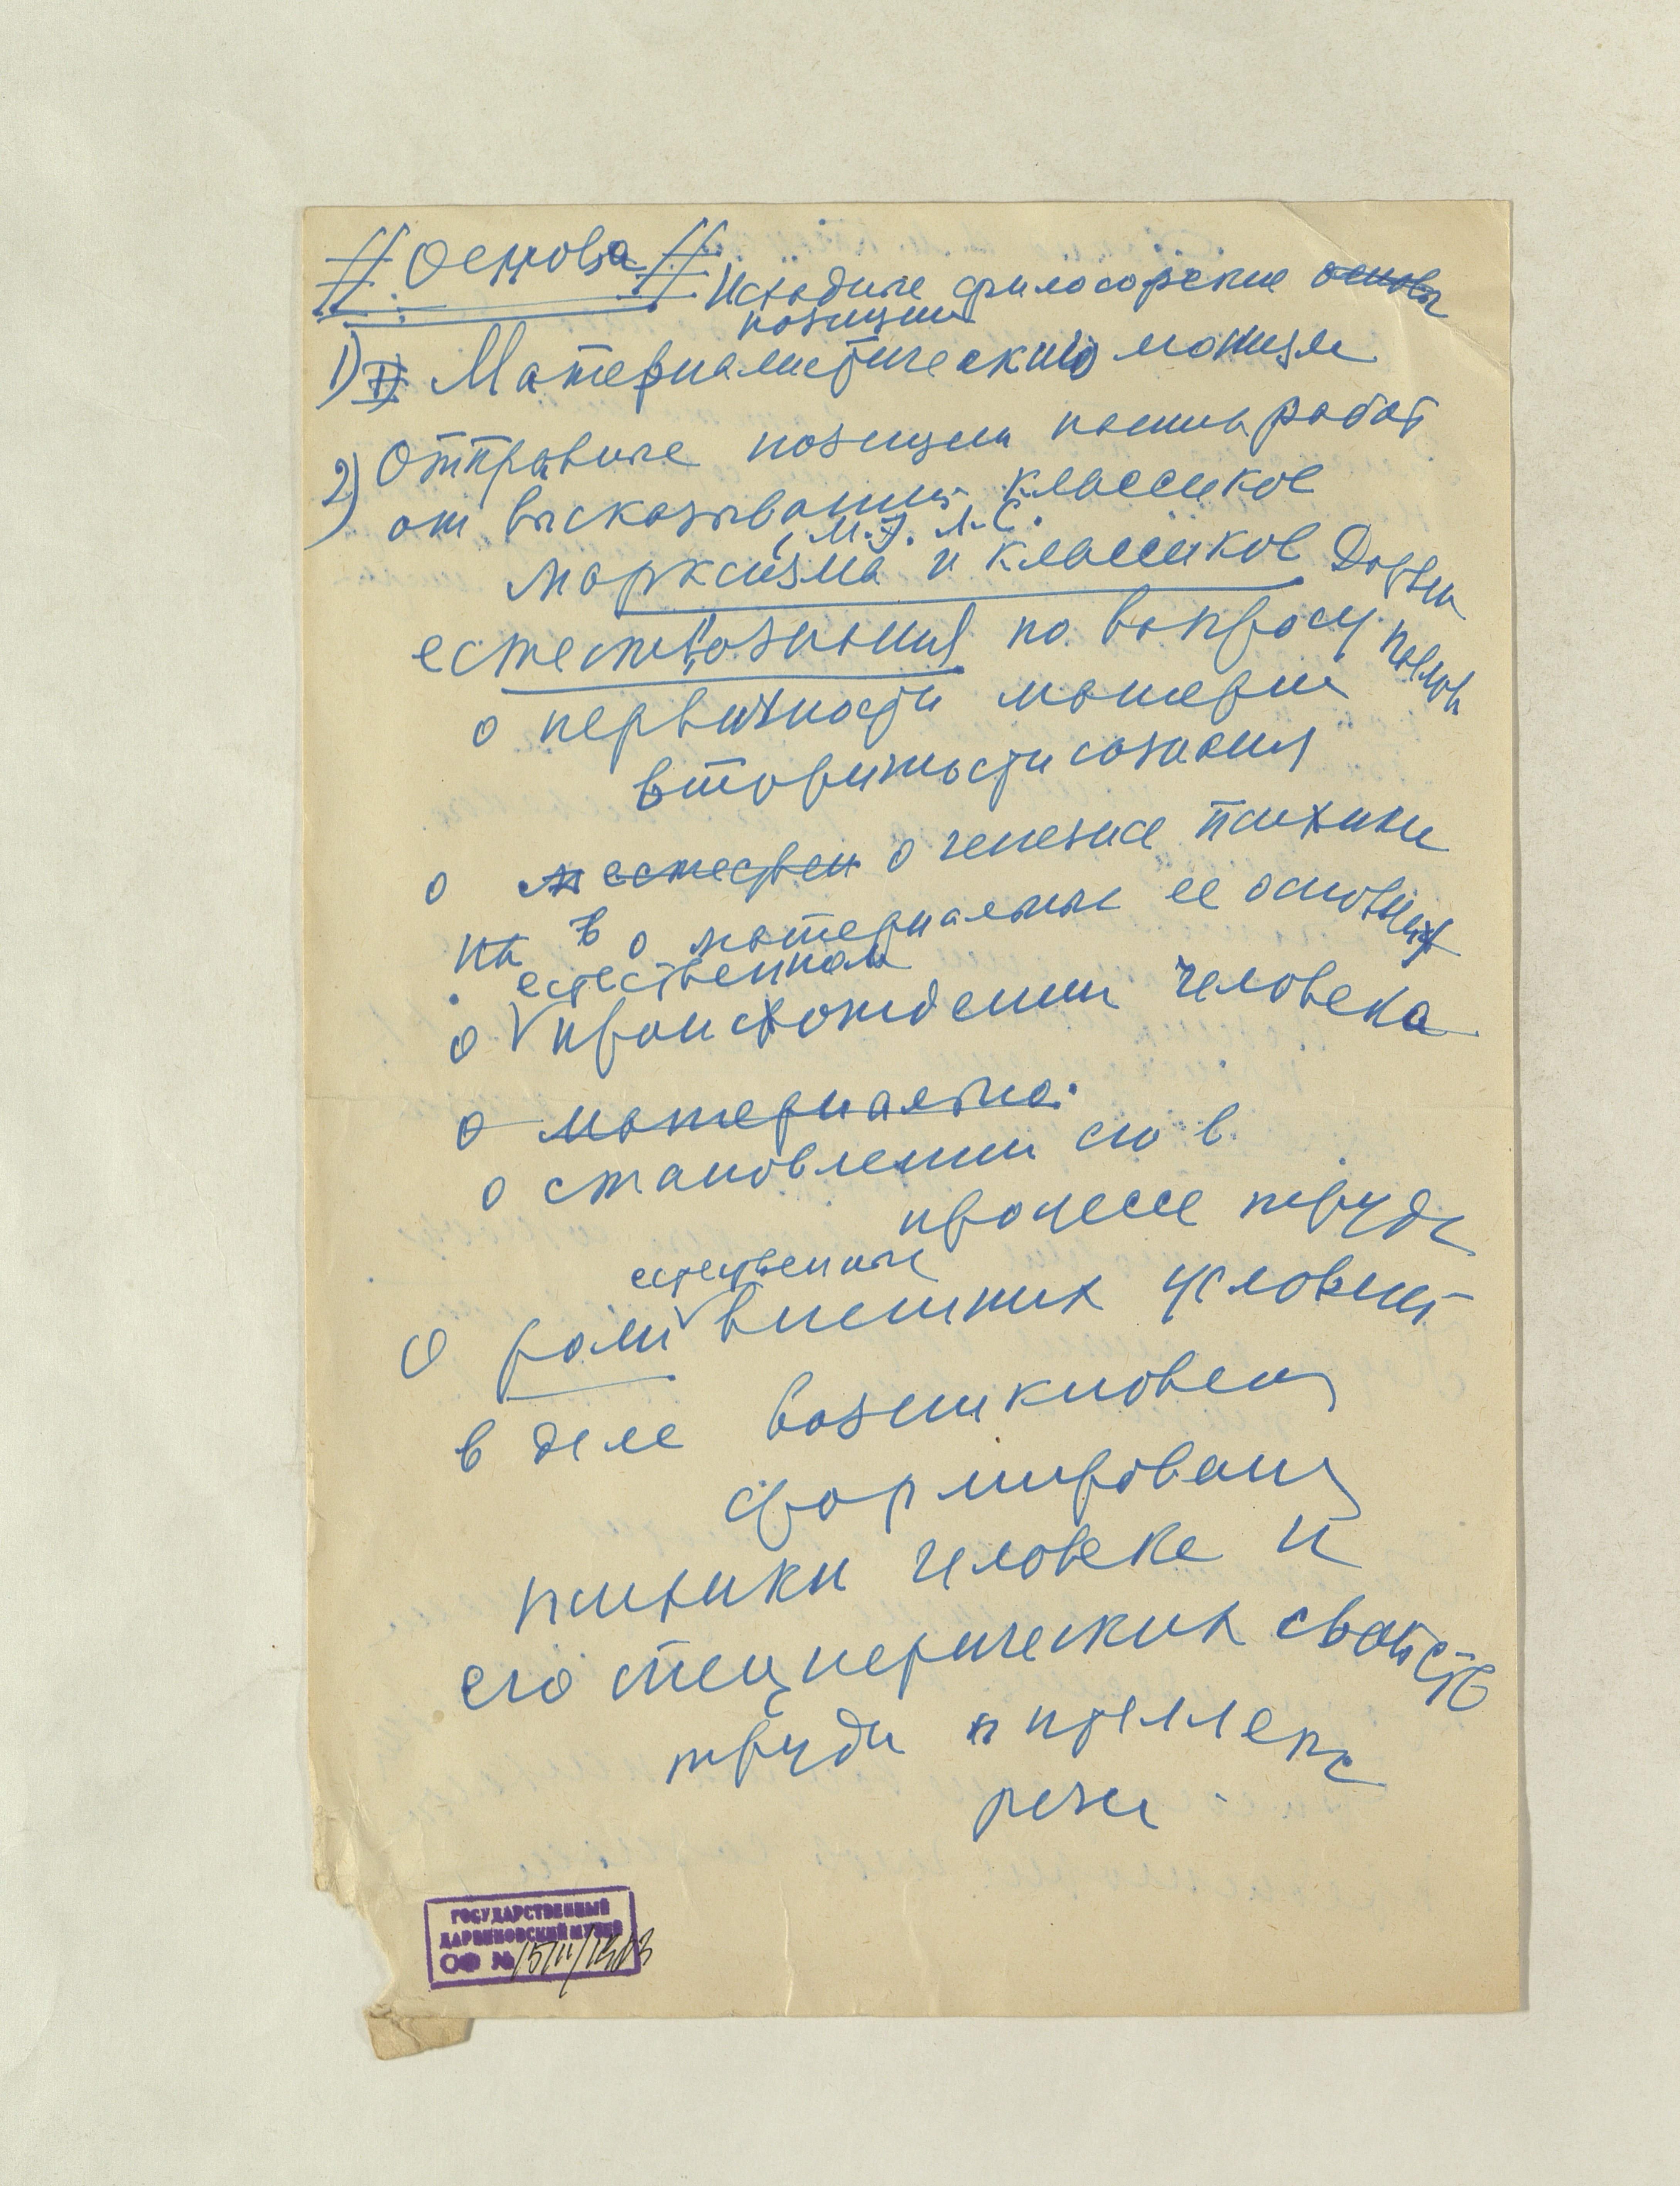 Основа
Исходные философские основы
позиции
1) I) Материалистический монизм
2) Отправные позиции наших работ
от высказываний классиков
М. Э. Л. С.
марксизма и классиков Дарвин
естествознания по вопросу Павлов
о первичности материи
вторичности сознания
о естествен о генезисе психики
о материальных ее основах
естественном
о происхождении человека
о материально
о становлении его в
процессе труда
естественных
о роли внешних условий
в деле возникновен
формирован
психики человека и
его специфических свойств
труда интеллекта
речи
ГОСУДАРСТВЕННЫЙ
ДАРВИНОВСКИЙ МУЗЕЙ
ОФ №